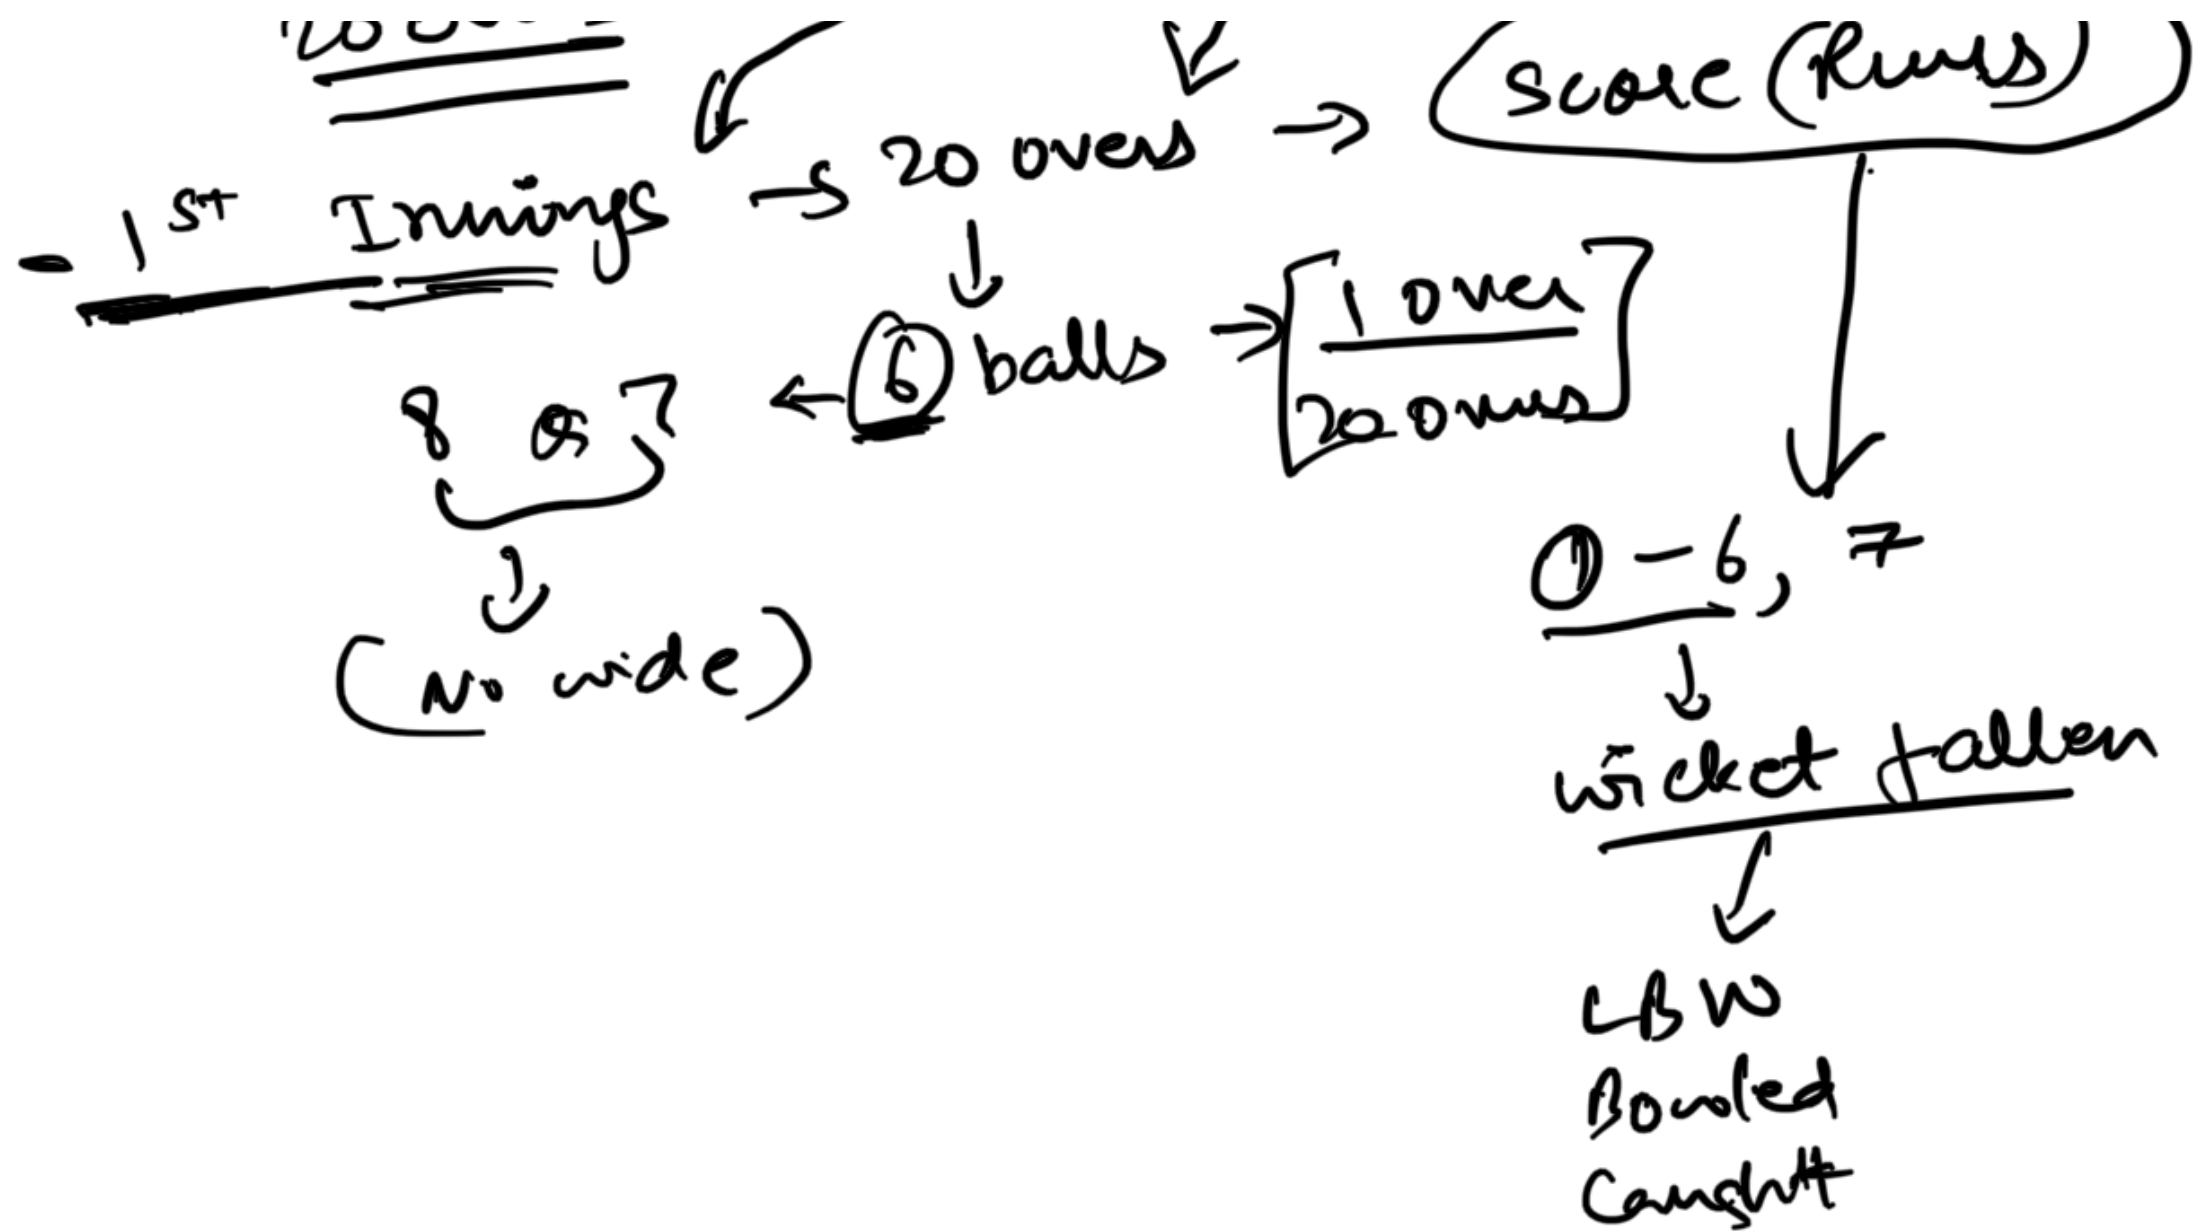 score (Runs)
- 1st Innings → 20 overs →
6 balls → [1 over
20 overs]
8 or 7 ←
(No wide)
1 - 6, 7
wicket fallen
LBW
Bowled
Caught